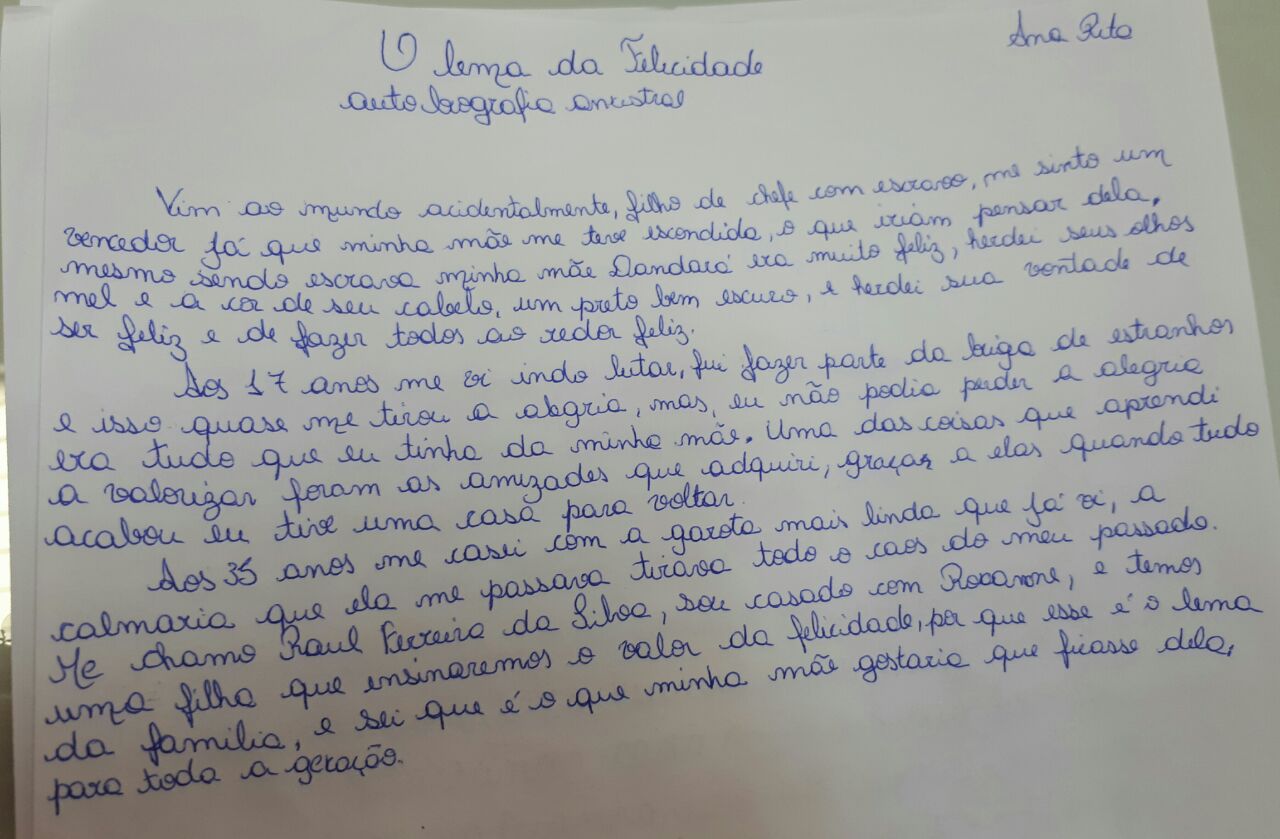 Ana Rita
O lema da Felicidade
autobiografia ancestral
Vim ao mundo acidentalmente, filho de chefe com escravo, me sinto um
vencedor já que minha mãe me teve escondida, o que iriam pensar dela,
mesmo sendo escrava minha mãe Dandará era muito feliz, herdei seus olhos
mel e a cor de seu cabelo, um preto bem escuro, e herdei sua vontade de
ser feliz e de fazer todos ao redor feliz.
Aos 17 anos me vi indo lutar, fui fazer parte da briga de estranhos
e isso quase me tirou a alegria, mas, eu não podia perder a alegria
era tudo que eu tinha da minha mãe. Uma das coisas que aprendi
a valorizar foram as amizades que adquiri, graças a elas quando tudo
acabou eu tive uma casa para voltar.
Aos 35 anos me casei com a garota mais linda que já vi, a
calmaria que ela me passava tirava todo o caos do meu passado.
Me chamo Raul Ferreira da Silva, sou casado com Roxanne, e temos
uma filha que ensinaremos o valor da felicidade, por que esse é o lema
da família, e sei que é o que minha mãe gostaria que ficasse dela,
para toda a geração.